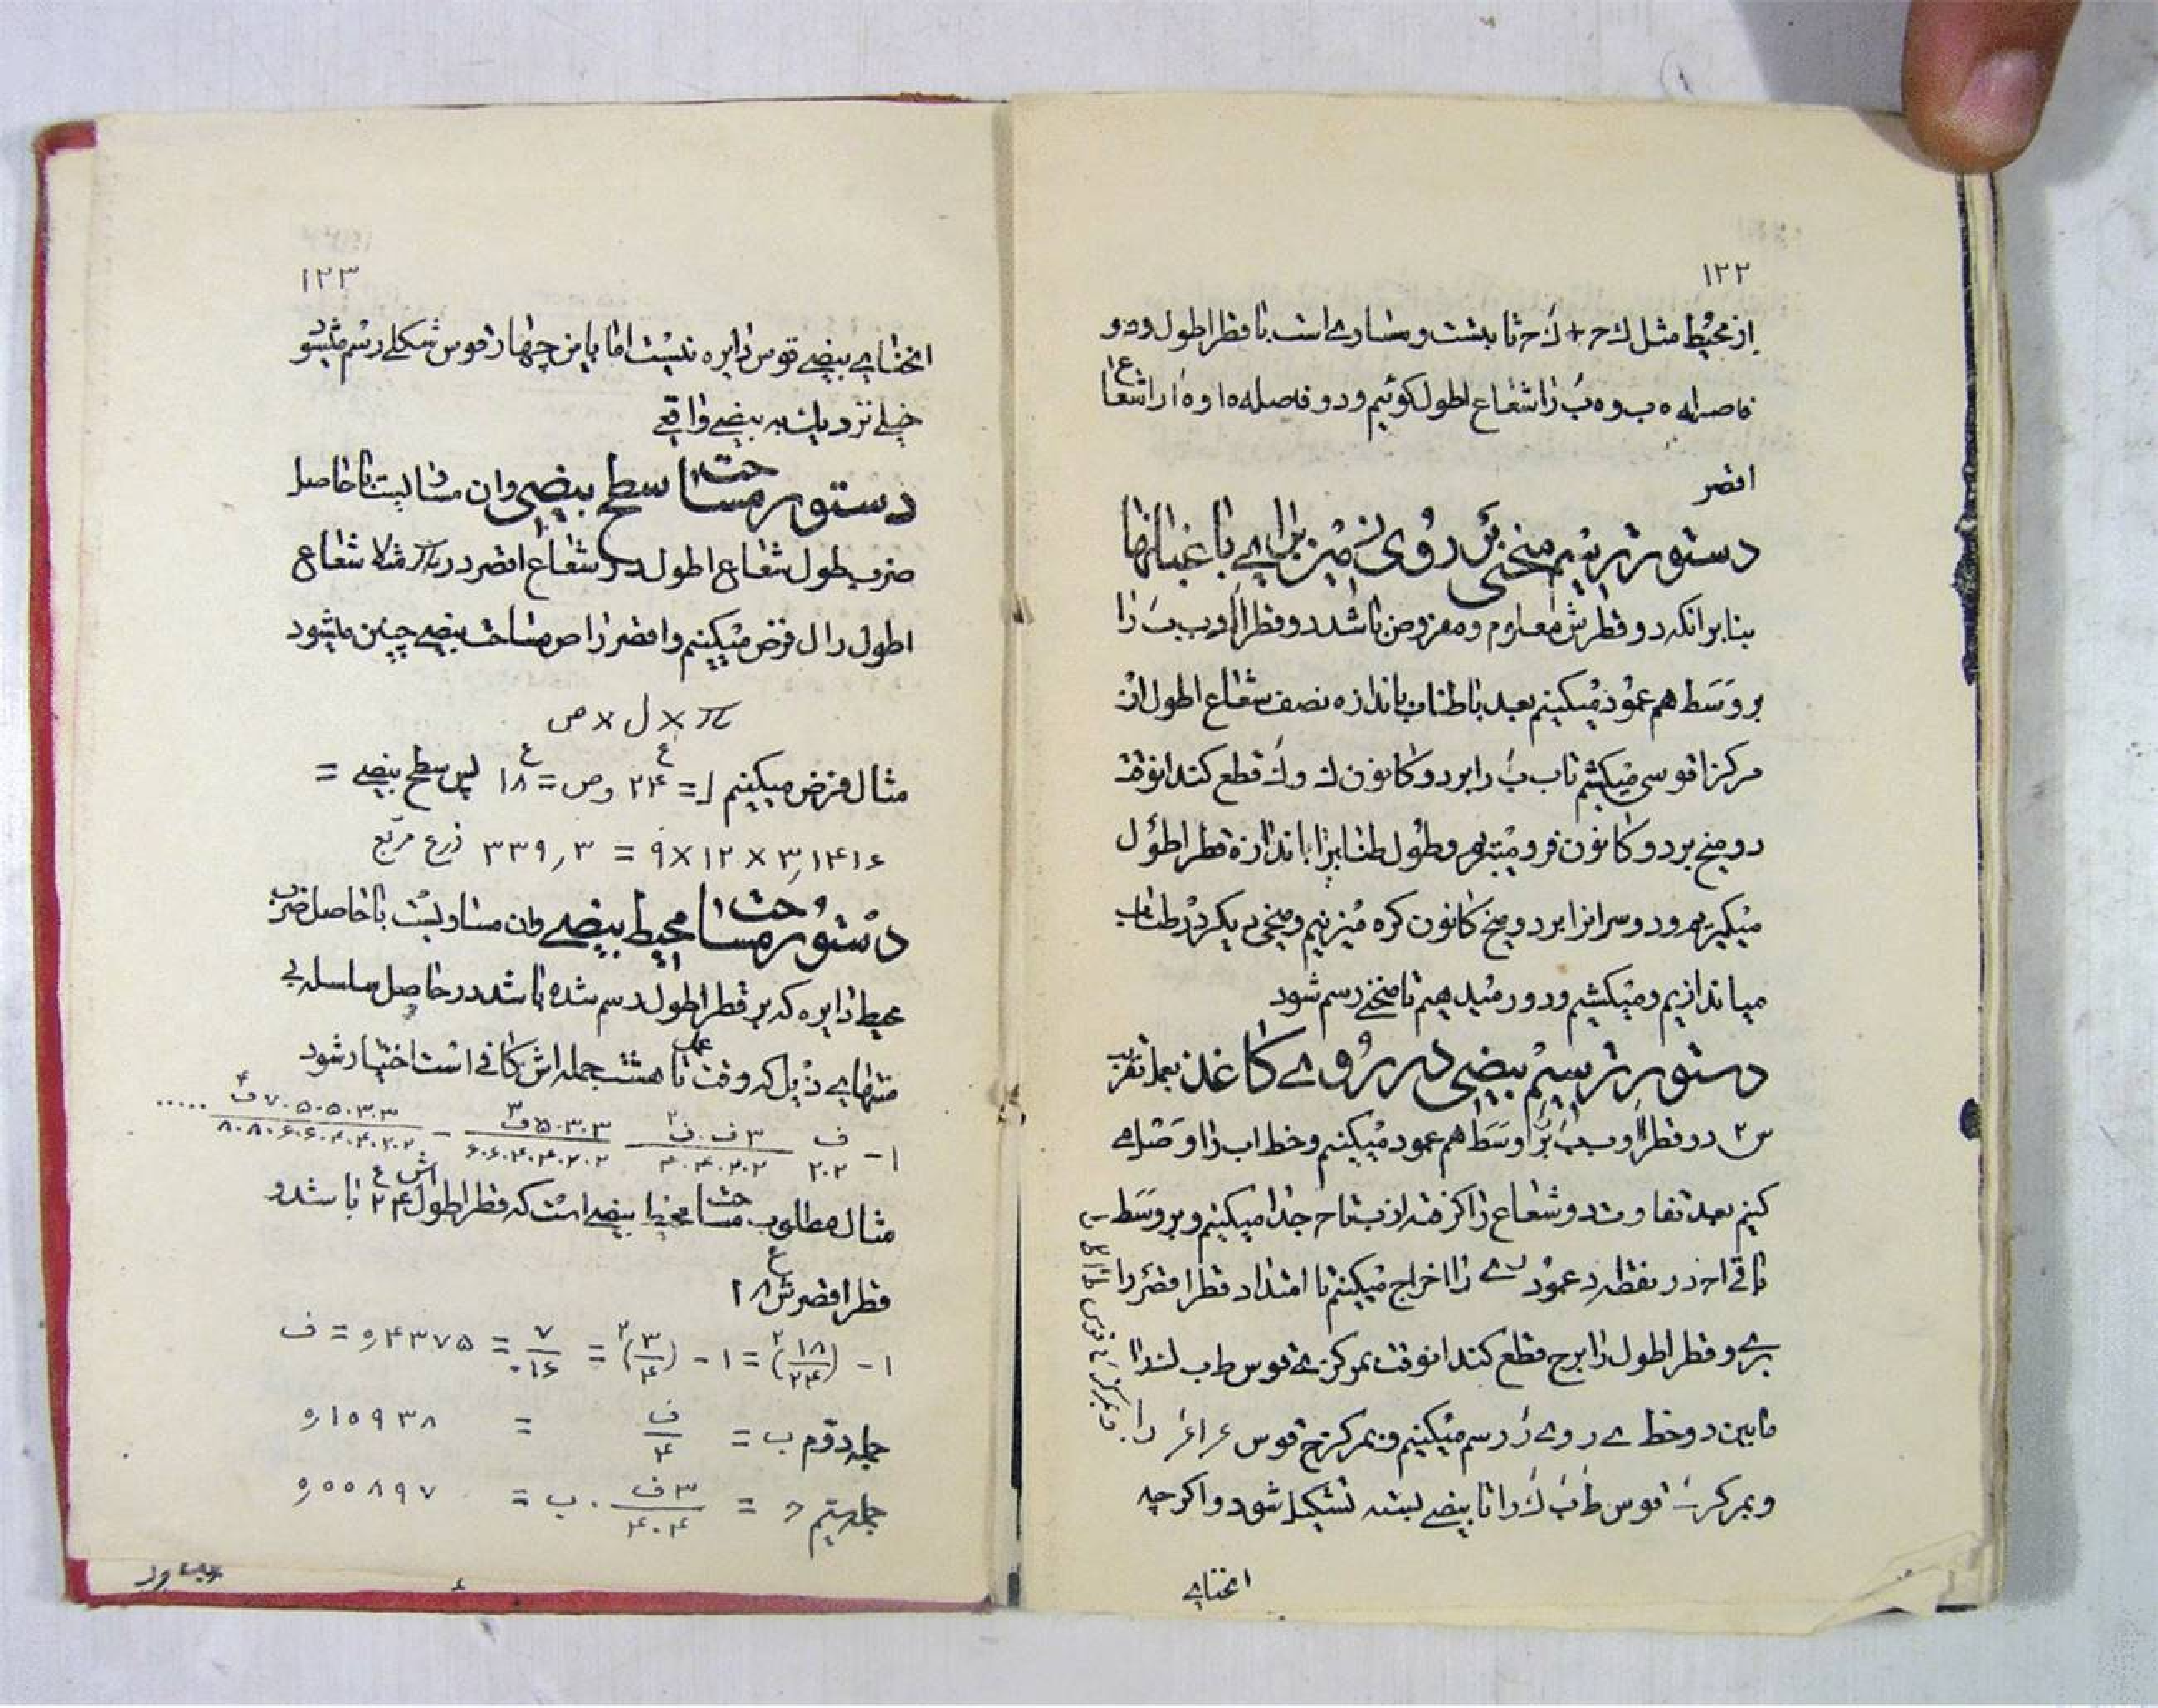 ۱۲۲
از محیط مثل ك ح + كَ ح ثابتست و مساوی است با قطر اطول و دو
فاصله ه ب و ه بَ را شعاع اطول گوئیم و دو فاصله ه ا و ه اَ را شعاع
اقصر
دستور ترسیم منحنی بر روی زمین برای باغبانها
بنابر انکه دو قطرش معلوم و مفروض باشد دو قطر ااَ و ب بَ را
بر وسط هم عمود میکنیم بعد با طناب باندازه نصف شعاع اطول از
مرکز ا قوسی میکشیم تا ب بَ را بر دو کانون ك و كَ قطع کند انوقت
دو میخ بر دو کانون فرو میبریم و طول طنابرا باندازه قطر اطول
میگیریم و دو سر انرا بر دو میخ کانون گره میزنیم و میخی دیگر در طناب
میاندازیم و میکشیم و دور میدهیم تا منحنی رسم شود
دستور ترسیم بیضی در روی کاغذ بعمل تقریب
س ۲ دو قطر ااَ و ب بَ را بر وسط هم عمود میکنیم و خط اب را وصل
کنیم بعد تفاوت دو شعاع را گرفته از ب تا ح جدا میکنیم و بر وسط
باقی اح در نقطه د عمود را اخراج میکنیم تا امتداد قطر اقصر را
بر ی و قطر اطول را بر ج قطع کند انوقت بمرکز ی قوس ط ب ل
مابین دو خط را رسم میکنیم و بمرکز ج قوس را
و بمرکز قوس را تا بیضی بسته تشکیل شود و اگر چه
انحنای
۱۲۳
انحنای بیضی قوس دایره نیست اما باین چهار قوس شکلی رسم میشود
خیلی نزدیك به بیضی واقعی
دستور مساحت سطح بیضی وان مساویست با حاصل
ضرب طول شعاع اطول در شعاع اقصر در π مثلا شعاع
اطول را ل فرض میکنیم و اقصر را ص مساحت بیضی چنین میشود
π × ل × ص
مثال فرض میکنیم ل = ۲۴ع و ص = ۱۸ع پس سطح بیضی =
۹ × ۱۲ × ۳٫۱۴۱۶ = ۳۳۹٫۳ ذرع مربع
دستور مساحت محیط بیضی وان مساویست با حاصل ضرب
محیط دایره که بر قطر اطول رسم شده باشد در حاصل سلسله بی
منتهای ذیل که وقت عمل تا هشت جمله اش کافی است اختیار شود
۱ - ف/۲.۲ - ۳ف.ف۲/۲.۲.۴.۴ - ۳.۳.۵ف۳/۲.۲.۴.۴.۶.۶ - ۳.۳.۵.۵.۷ف۴/۲.۲.۴.۴.۶.۶.۸.۸ .....
مثال مطلوب مساحت محیط بیضی است که قطر اطولش ۲۴ع باشد و
قطر اقصرش ۱۸ع
۱ - (۱۸/۲۴)۲ = ۱ - (۳/۴)۲ = ۷/۱۶ = ۰٫۴۳۷۵ = ف
جمله دوم ب = ف/۴ = ۰٫۱۰۹۳۸
جمله سیم ح = ۳ف/۴.۴ . ب = ۰٫۰۰۸۹۷